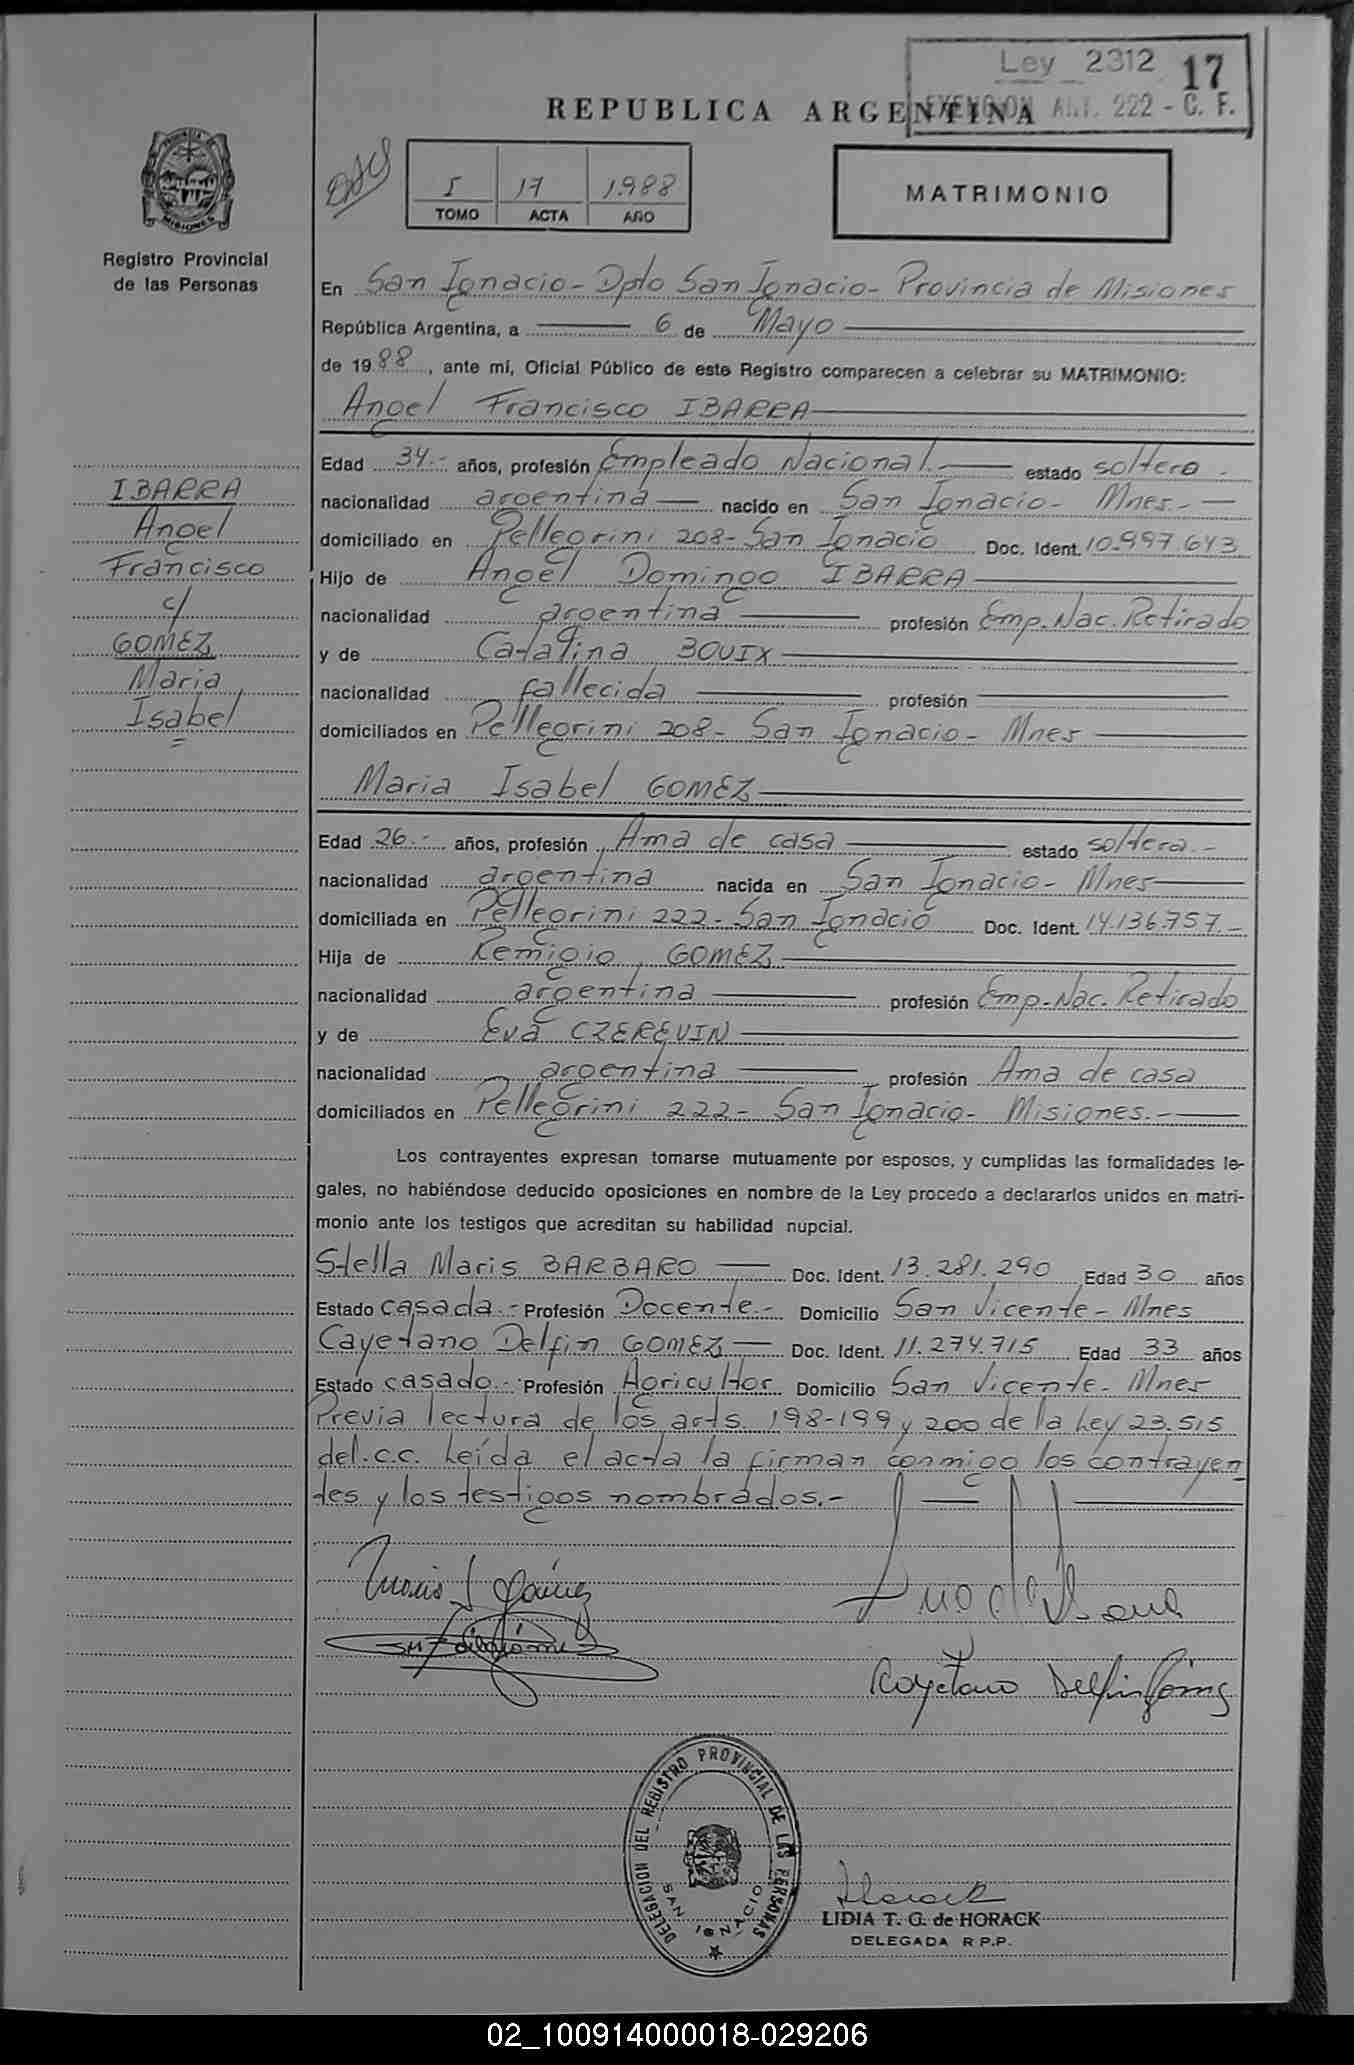 Ley 2312 17
REPUBLICA ARGENTINA
EXENCION Art. 222 - C. F.
I 17 1.988
TOMO ACTA AÑO
MATRIMONIO
PROVINCIA
MISIONES
Registro Provincial
de las Personas
En San Ignacio - Dpto San Ignacio - Provincia de Misiones
República Argentina, a 6 de Mayo
de 1988, ante mí, Oficial Público de este Registro comparecen a celebrar su MATRIMONIO:
Angel Francisco IBARRA
Edad 34.- años, profesión Empleado Nacional.- estado soltero.
nacionalidad argentina nacido en San Ignacio - Mnes.-
domiciliado en Pellegrini 208 - San Ignacio Doc. Ident. 10.997.643
Hijo de Angel Domingo IBARRA
nacionalidad argentina profesión Emp. Nac. Retirado
y de Catalina BOUIX
nacionalidad fallecida profesión
domiciliados en Pellegrini 208 - San Ignacio - Mnes
IBARRA
Angel
Francisco
c/
GOMEZ
Maria
Isabel
=
Maria Isabel GOMEZ
Edad 26.- años, profesión Ama de casa estado soltera.-
nacionalidad argentina nacida en San Ignacio - Mnes
domiciliada en Pellegrini 222 - San Ignacio Doc. Ident. 14.136.757.-
Hija de Remigio GOMEZ
nacionalidad argentina profesión Emp. Nac. Retirado
y de Eva CZEREVIN
nacionalidad argentina profesión Ama de casa
domiciliados en Pellegrini 222 - San Ignacio - Misiones.-
Los contrayentes expresan tomarse mutuamente por esposos, y cumplidas las formalidades le-
gales, no habiéndose deducido oposiciones en nombre de la Ley procedo a declararlos unidos en matri-
monio ante los testigos que acreditan su habilidad nupcial.
Stella Maris BARBARO Doc. Ident. 13.281.290 Edad 30 años
Estado casada.- Profesión Docente.- Domicilio San Vicente - Mnes
Cayetano Delfin GOMEZ Doc. Ident. 11.274.715 Edad 33 años
Estado casado.- Profesión Agricultor Domicilio San Vicente - Mnes
Previa lectura de los arts. 198-199 y 200 de la Ley 23.515
del.c.c. Leída el acta la firman conmigo los contrayen
tes y los testigos nombrados.-
Maria I Gómez
Cayetano Delfin Gómez
DELEGACION DEL REGISTRO PROVINCIAL DE LAS PERSONAS
SAN IGNACIO
Horack
LIDIA T. G. de HORACK
DELEGADA R P.P.
02_100914000018-029206